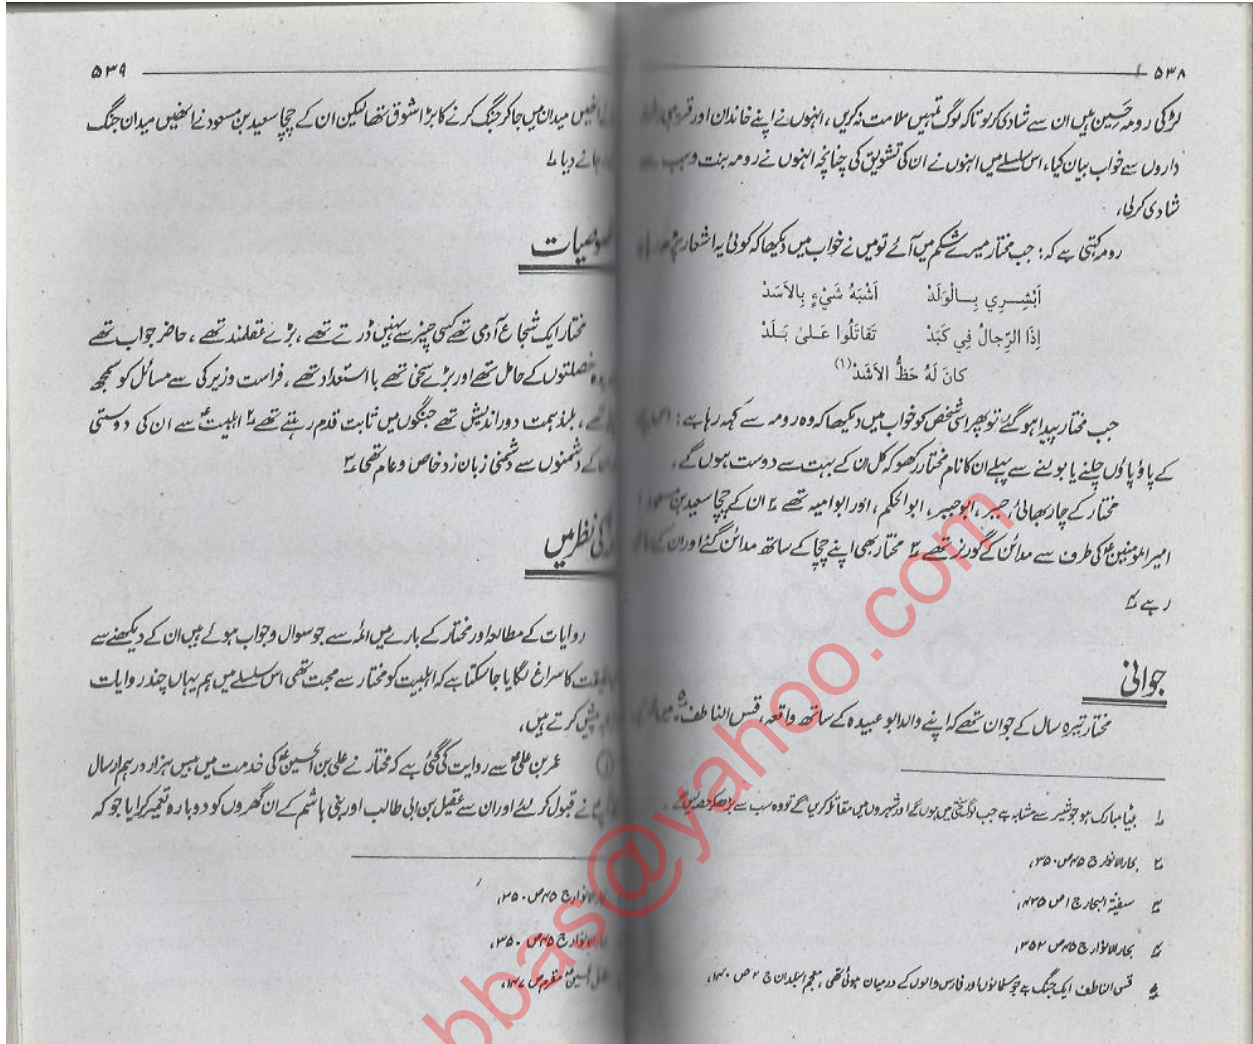 ۵۳۸
لڑکی رومہ حَسِین ہیں ان سے شادی کر لو تاکہ لوگ تمہیں ملامت نہ کریں، انہوں نے اپنے خاندان اور
داروں سے خواب بیان کیا، اس سلسلے میں انہوں نے ان کی تشویق کی چنانچہ انہوں نے رومہ بنت وہب سے
شادی کرلی،
رومہ کہتی ہے کہ: جب مختار میرے شکم میں آئے تو میں نے خواب میں دیکھا کہ کوئی یہ اشعار پڑھ رہا
اَبْشِـــرِي بِـالْوَلَدْ اَشْبَهُ شَيْءٍ بِالاَسَدْ
اِذَا الرِّجالُ فِي كَبَدْ تَقاتَلُوا عَـلىٰ بَـلَدْ
كانَ لَهُ حَظُّ الاَشَدْ (۱)
جب مختار پیدا ہو گئے تو پھر اسی شخص کو خواب میں دیکھا کہ وہ رومہ سے کہہ رہا ہے: اس
کے پاؤ پاؤں چلنے یا بولنے سے پہلے ان کا نام مختار رکھو کہ کل ان کے بہت سے دوست ہوں گے۔
مختار کے چار بھائی، جبر، ابو جبر، ابو الحکم، اور ابو امیہ تھے ۲؎ ان کے چچا سعید بن مسعود
امیر المومنینؑ کی طرف سے مدائن کے گورنر تھے ۳؎ مختار بھی اپنے چچا کے ساتھ مدائن گئے اور ان کے
رہے ۴؎
جوانی
مختار تیرہ سال کے جوان تھے کہ اپنے والد ابو عبیدہ کے ساتھ واقعہ، قس الناطف ۵؎ میں
۱؎ بیٹا مبارک ہو جو شیر سے مشابہ ہے جب لوگ سختی میں ہوں گے اور شہروں میں مقاتلہ کریں گے تو وہ سب سے بڑھ کر حصہ لیں گے،
۲؎ بحار الانوار ج ۴۵ ص ۳۵۰،
۳؎ سفینۃ البحار ج ۱ ص ۴۳۵،
۴؎ بحار الانوار ج ۴۵ ص ۳۵۲،
۵؎ قس الناطف ایک جنگ ہے جو مسلمانوں اور فارس والوں کے درمیان ہوئی تھی، معجم البلدان ج ۲ ص ۱۴۰،
۵۳۹
انھیں میدان میں جا کر جنگ کرنے کا بڑا شوق تھا لیکن ان کے چچا سعید بن مسعود نے انھیں میدان جنگ
جانے دیا ۱؎
خصوصیات
مختار ایک شجاع آدمی تھے کسی چیز سے نہیں ڈرتے تھے، بڑے عقلمند تھے، حاضر جواب تھے
خصلتوں کے حامل تھے اور بڑے سخی تھے با استعداد تھے، فراست و زیرکی سے مسائل کو سمجھ
تھے، بلند ہمت دور اندیش تھے جنگوں میں ثابت قدم رہتے تھے ۲؎ اہلبیتؑ سے ان کی دوستی
کے دشمنوں سے دشمنی زبان زد خاص و عام تھی ۳؎
کی نظر میں
روایات کے مطالعہ اور مختار کے بارے میں ائمہ سے جو سوال و جواب ہوئے ہیں ان کے دیکھنے سے
کا سراغ لگایا جا سکتا ہے کہ اہلبیت کو مختار سے محبت تھی اس سلسلے میں ہم یہاں چند روایات
پیش کرتے ہیں،
(۱) عمر بن علی سے روایت کی گئی ہے کہ مختار نے علی بن الحسینؑ کی خدمت میں بیس ہزار درہم ارسال
نے قبول کر لئے اور ان سے عقیل بن ابی طالب اور بنی ہاشم کے ان گھروں کو دوبارہ تعمیر کرایا جو کہ
بحار الانوار ج ۴۵ ص ۳۵۰،
بحار الانوار ج ۴۵ ص ۳۵۰،
الحسینؑ مقرم ص ۱۴۷،
bbas@yahoo.com